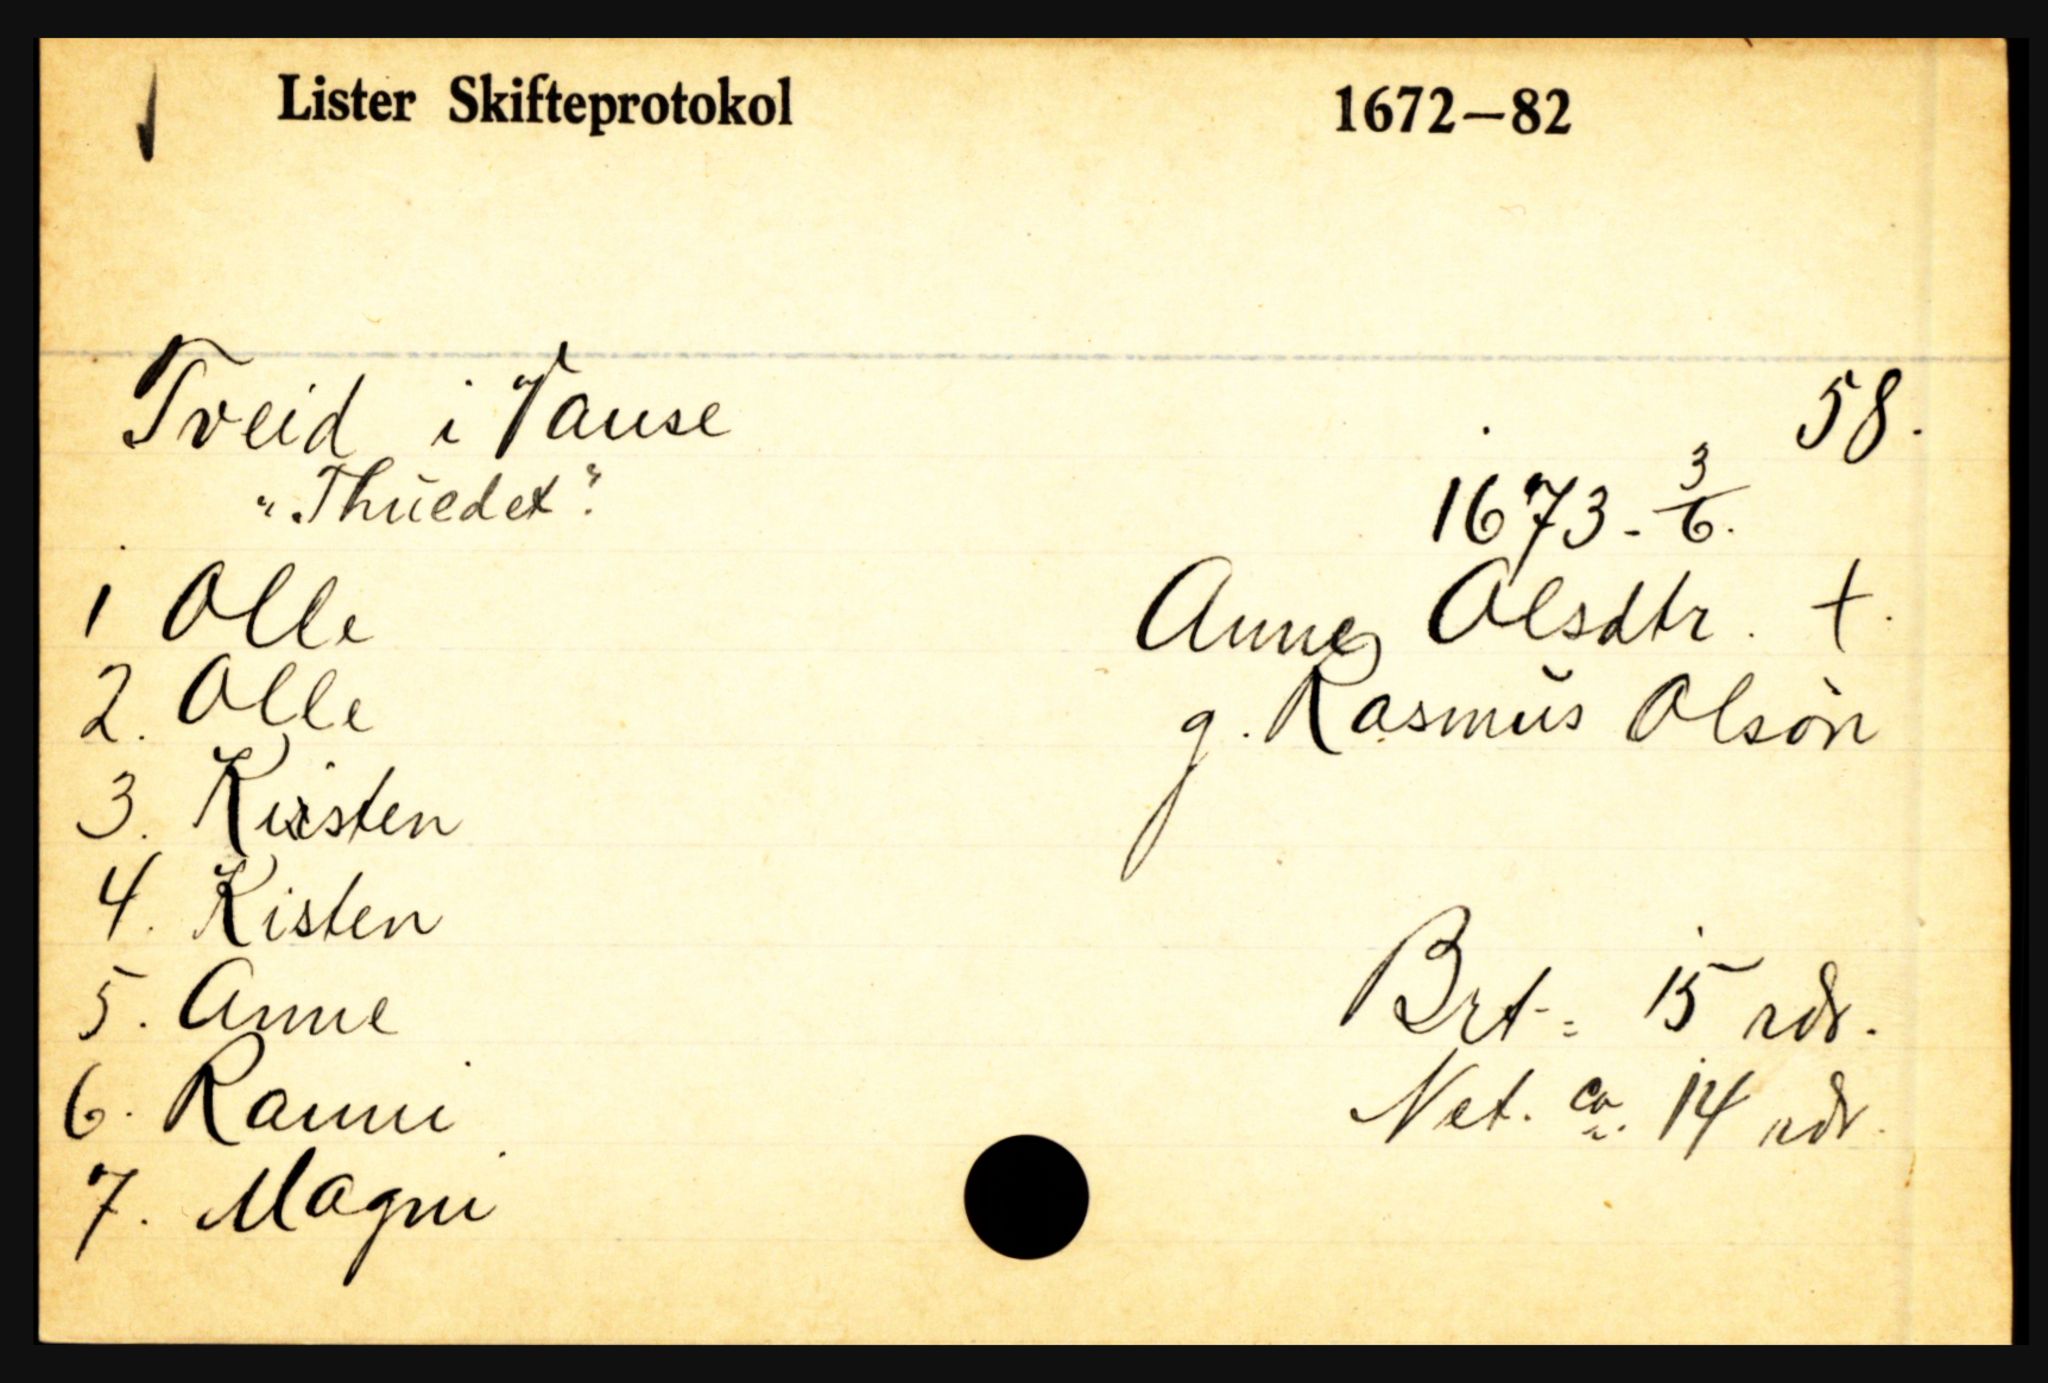 Lister Skifteprotokol 1672–82
Tveid i Vanse 58.
"Thuedet".
1673 - 3/6.
1 Olle
Anne Olsdtr. †.
2. Olle
g. Rasmus Olsøn
3. Kirsten
4. Kisten
5. Anne
Brt = 15 rdr.
6. Ranni
Net. ca. 14 rdr.
7. Magni